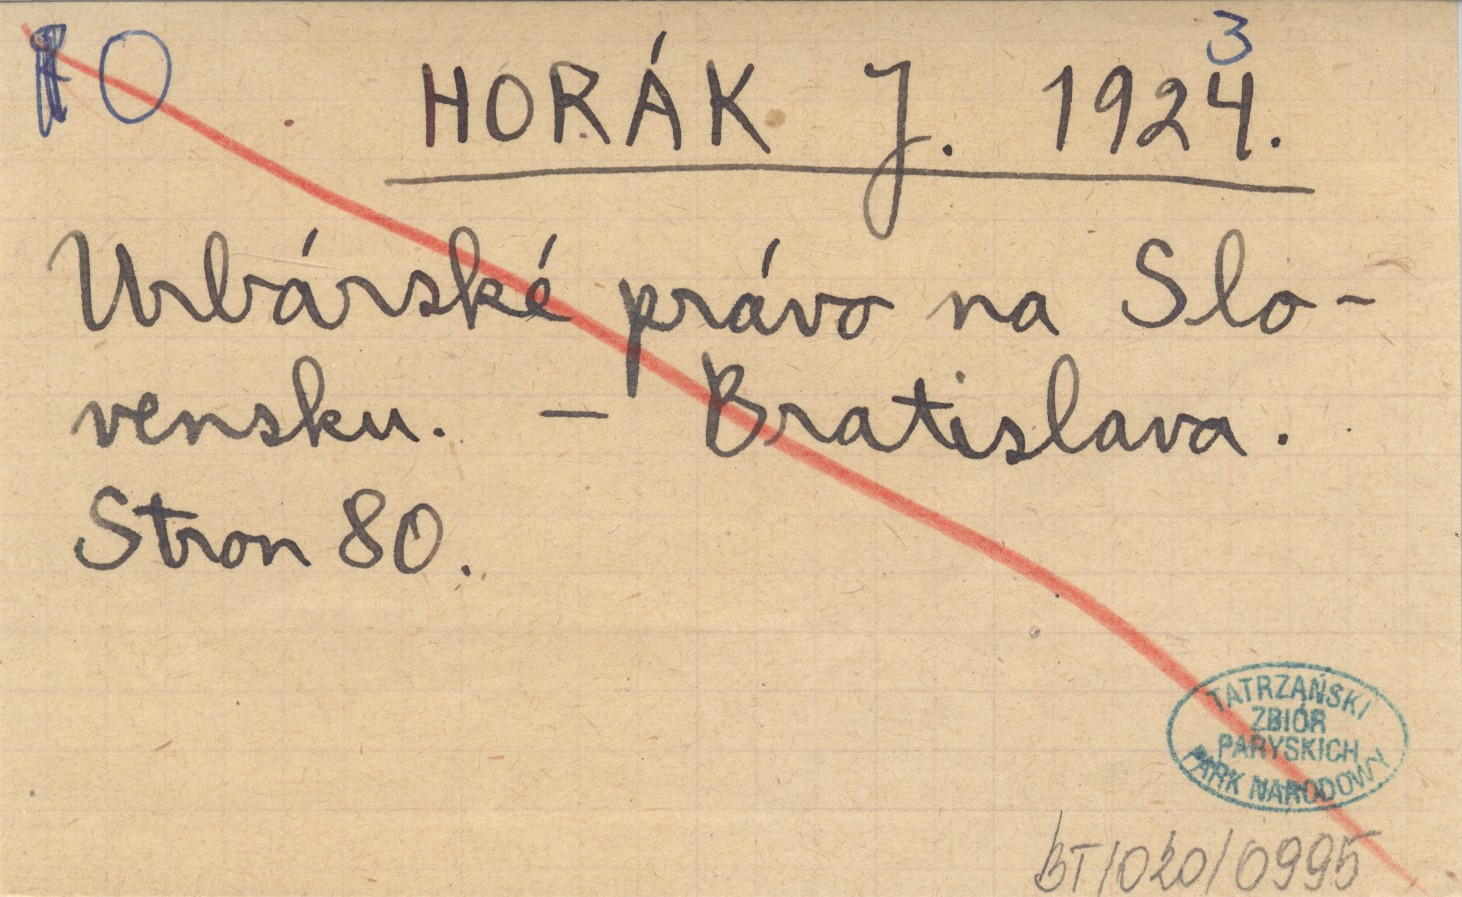 O
3
HORÁK J. 1924.
Urbárské právo na Slo-
vensku. – Bratislava.
Stron 80.
TATRZAŃSKI
ZBIÓR
PARYSKICH
PARK NARODOWY
BT/020/0995